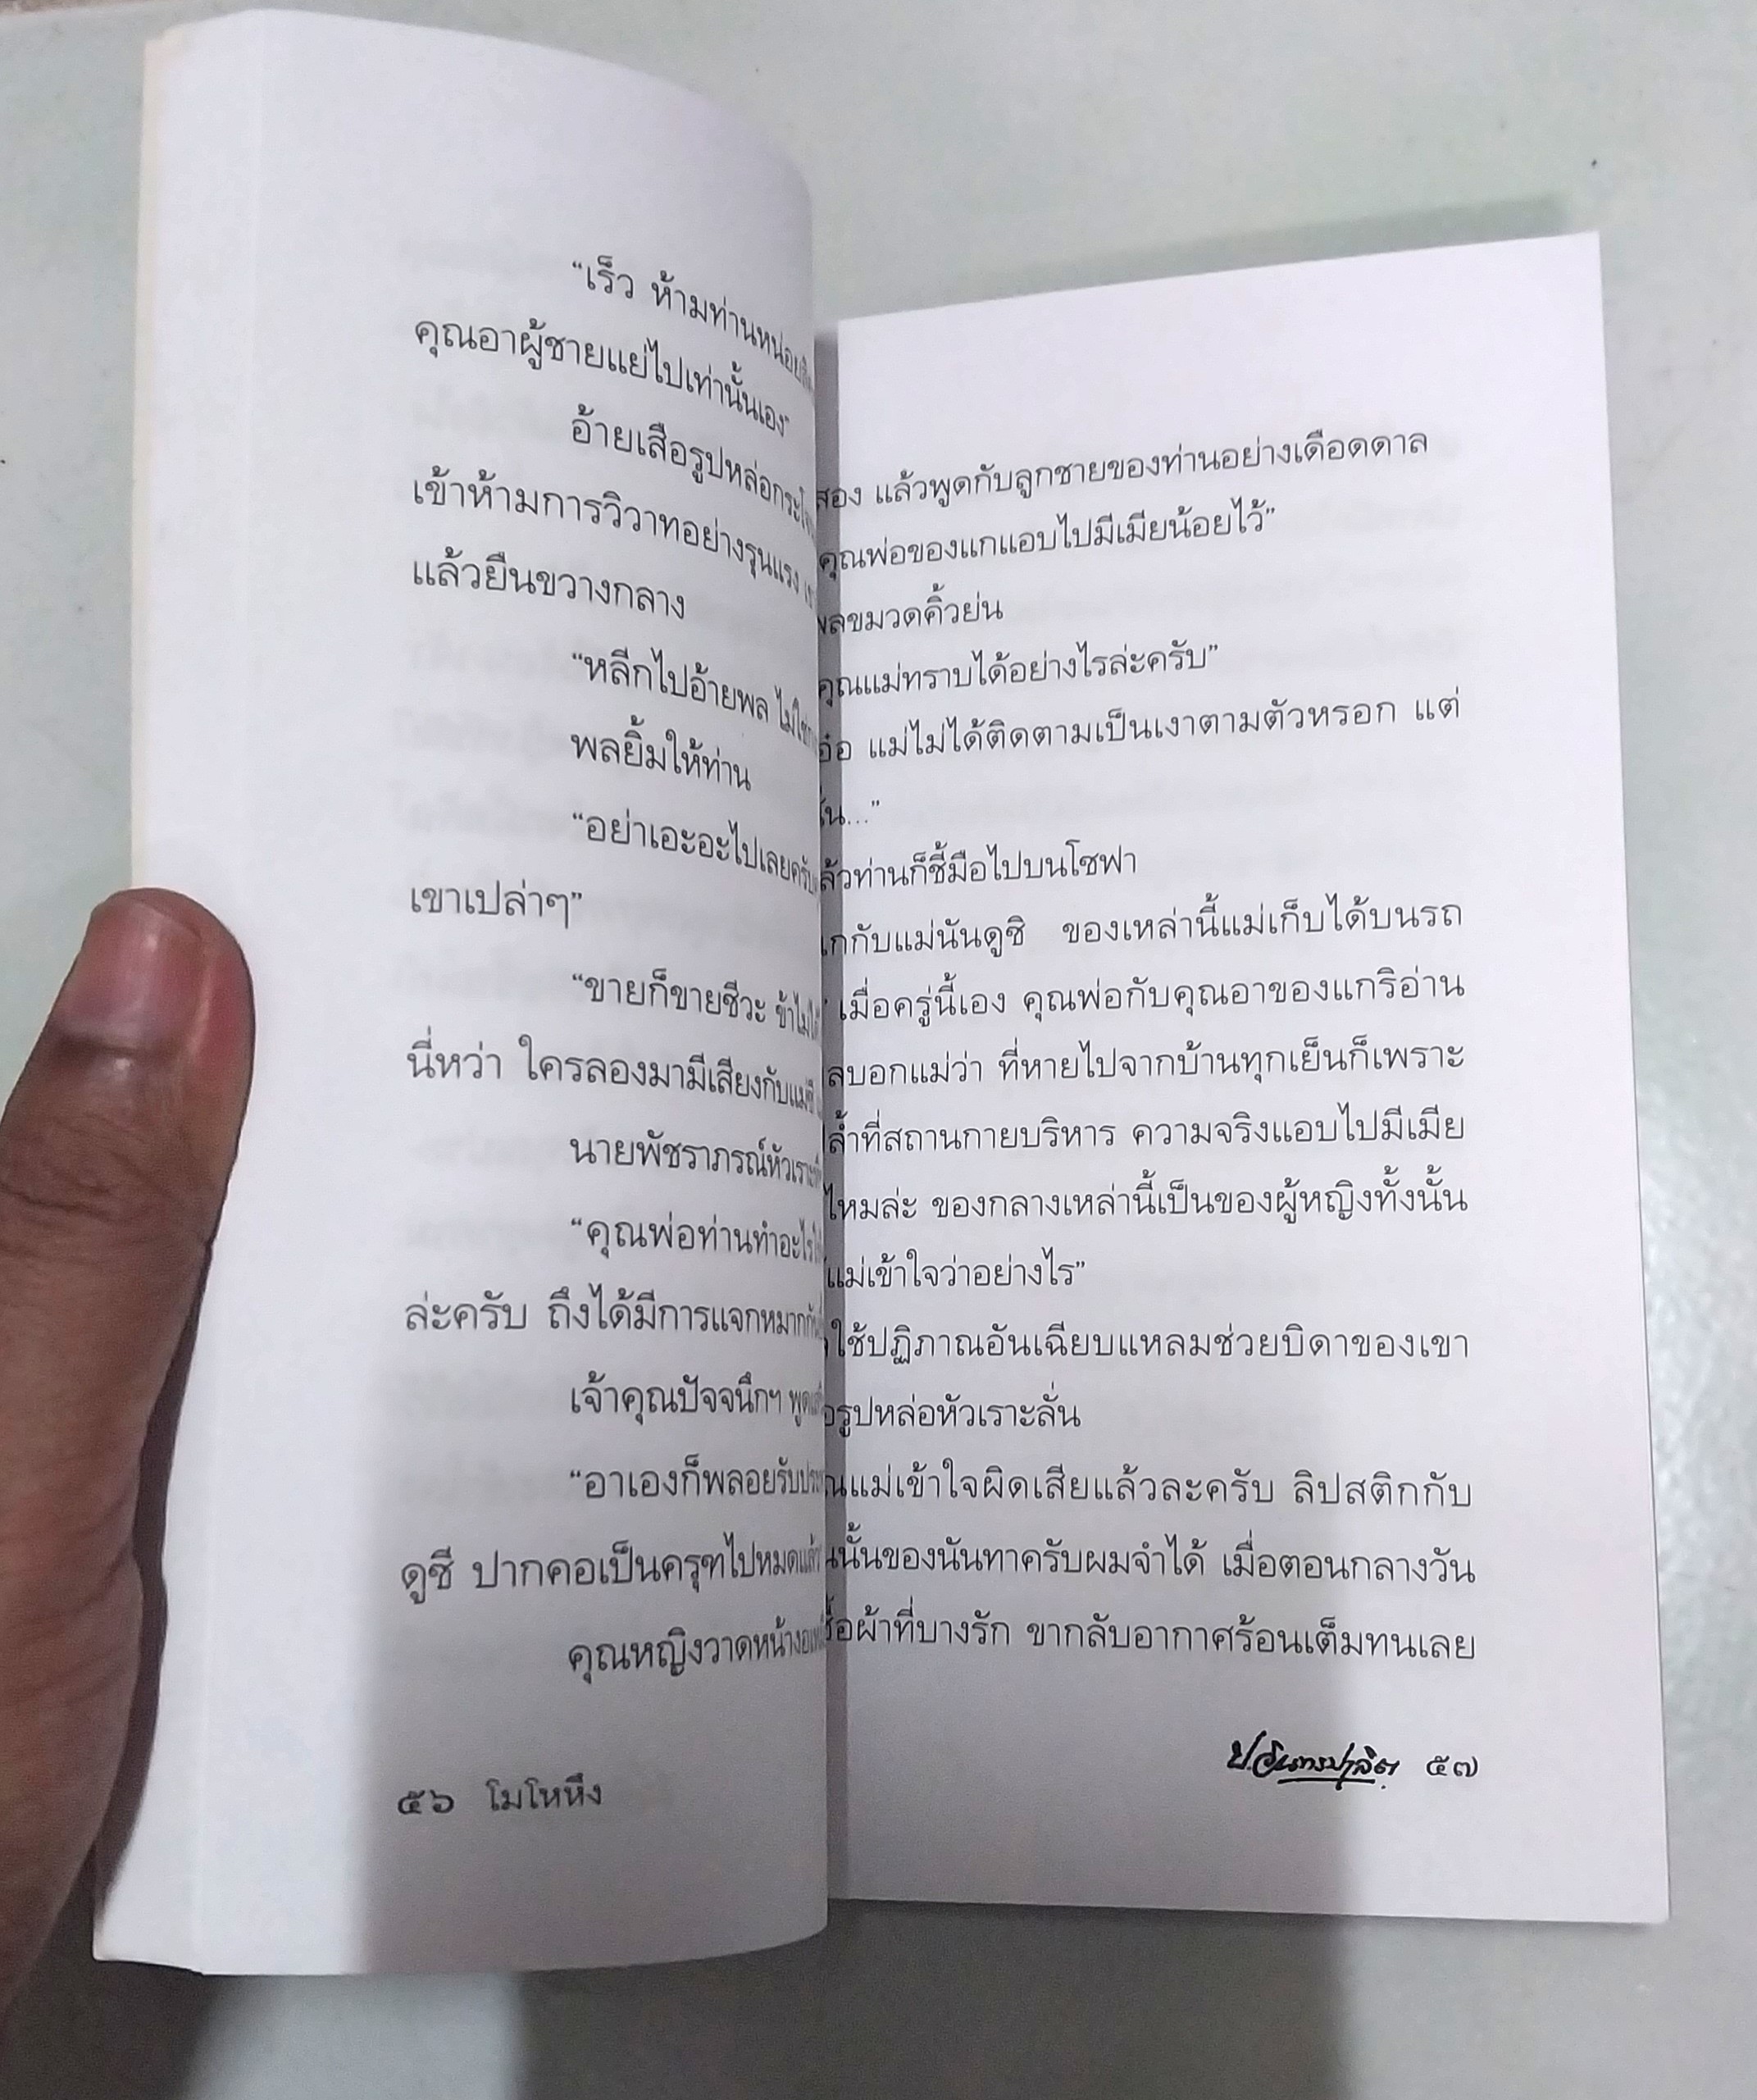 “เร็ว ห้ามท่านหน่อย
คุณอาผู้ชายแย่ไปเท่านั้นเอง”
อ้ายเสือรูปหล่อ
เข้าห้ามการวิวาทอย่างรุนแรง
แล้วยืนขวางกลาง
“หลีกไปอ้ายพล
พลยิ้มให้ท่าน
“อย่าเอะอะไปเลยครับ
เขาเปล่าๆ”
“ขายก็ขายซีวะ ข้าไม่
นี่หว่า ใครลองมามีเสียงกับ
นายพัชราภรณ์หัวเราะ
“คุณพ่อท่านทำอะไร
ล่ะครับ ถึงได้มีการแจกหมากกัน
เจ้าคุณปัจจนึกฯ
“อาเองก็พลอยรับ
ดูซี ปากคอเป็นครุฑไปหมดแล้ว
คุณหญิงวาดหน้างอ
๕๖ โมโหหึง
สอง แล้วพูดกับลูกชายของท่านอย่างเดือดดาล
คุณพ่อของแกแอบไปมีเมียน้อยไว้”
พลขมวดคิ้วย่น
คุณแม่ทราบได้อย่างไรล่ะครับ”
แม่ไม่ได้ติดตามเป็นเงาตามตัวหรอก แต่
...”
ท่านก็ชี้มือไปบนโซฟา
กับแม่นันดูซิ ของเหล่านี้แม่เก็บได้บนรถ
เมื่อครู่นี้เอง คุณพ่อกับคุณอาของแกริอ่าน
บอกแม่ว่า ที่หายไปจากบ้านทุกเย็นก็เพราะ
ที่สถานกายบริหาร ความจริงแอบไปมีเมีย
ไหมล่ะ ของกลางเหล่านี้เป็นของผู้หญิงทั้งนั้น
แม่เข้าใจว่าอย่างไร”
ใช้ปฏิภาณอันเฉียบแหลมช่วยบิดาของเขา
รูปหล่อหัวเราะลั่น
แม่เข้าใจผิดเสียแล้วละครับ ลิปสติกกับ
นั้นของนันทาครับผมจำได้ เมื่อตอนกลางวัน
ผ้าที่บางรัก ขากลับอากาศร้อนเต็มทนเลย
ป.อินทรปาลิต ๕๗